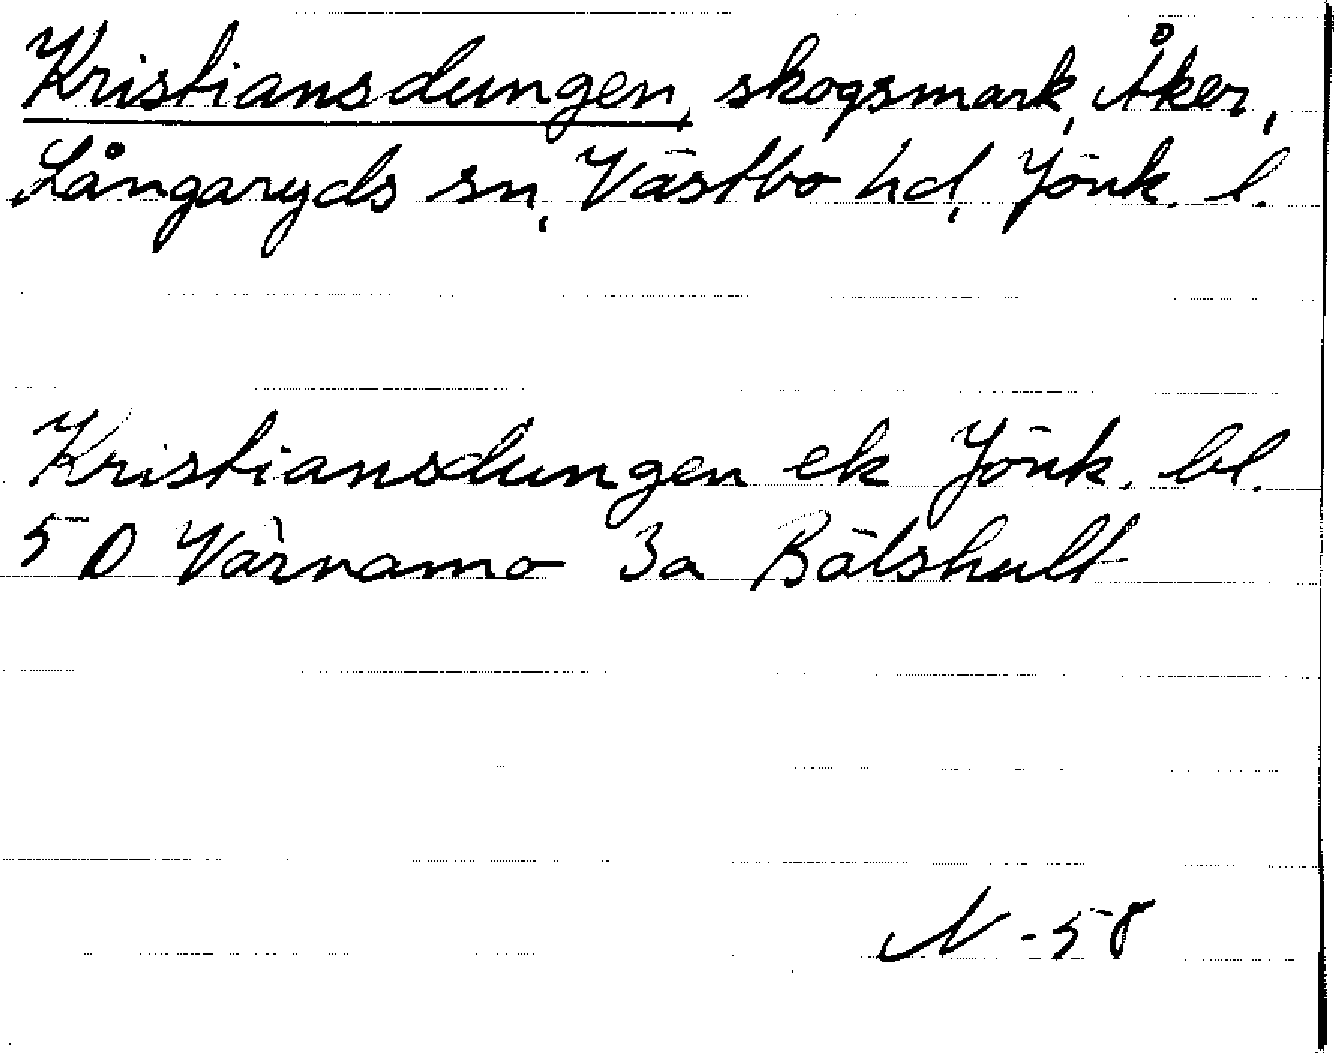 Kristiansdungen, skogsmark, Åker,
Långaryds sn, Västbo hd, Jönk. l.
Kristiansdungen ek Jönk. bl.
5 D Värnamo 3a Bälshult
N -58